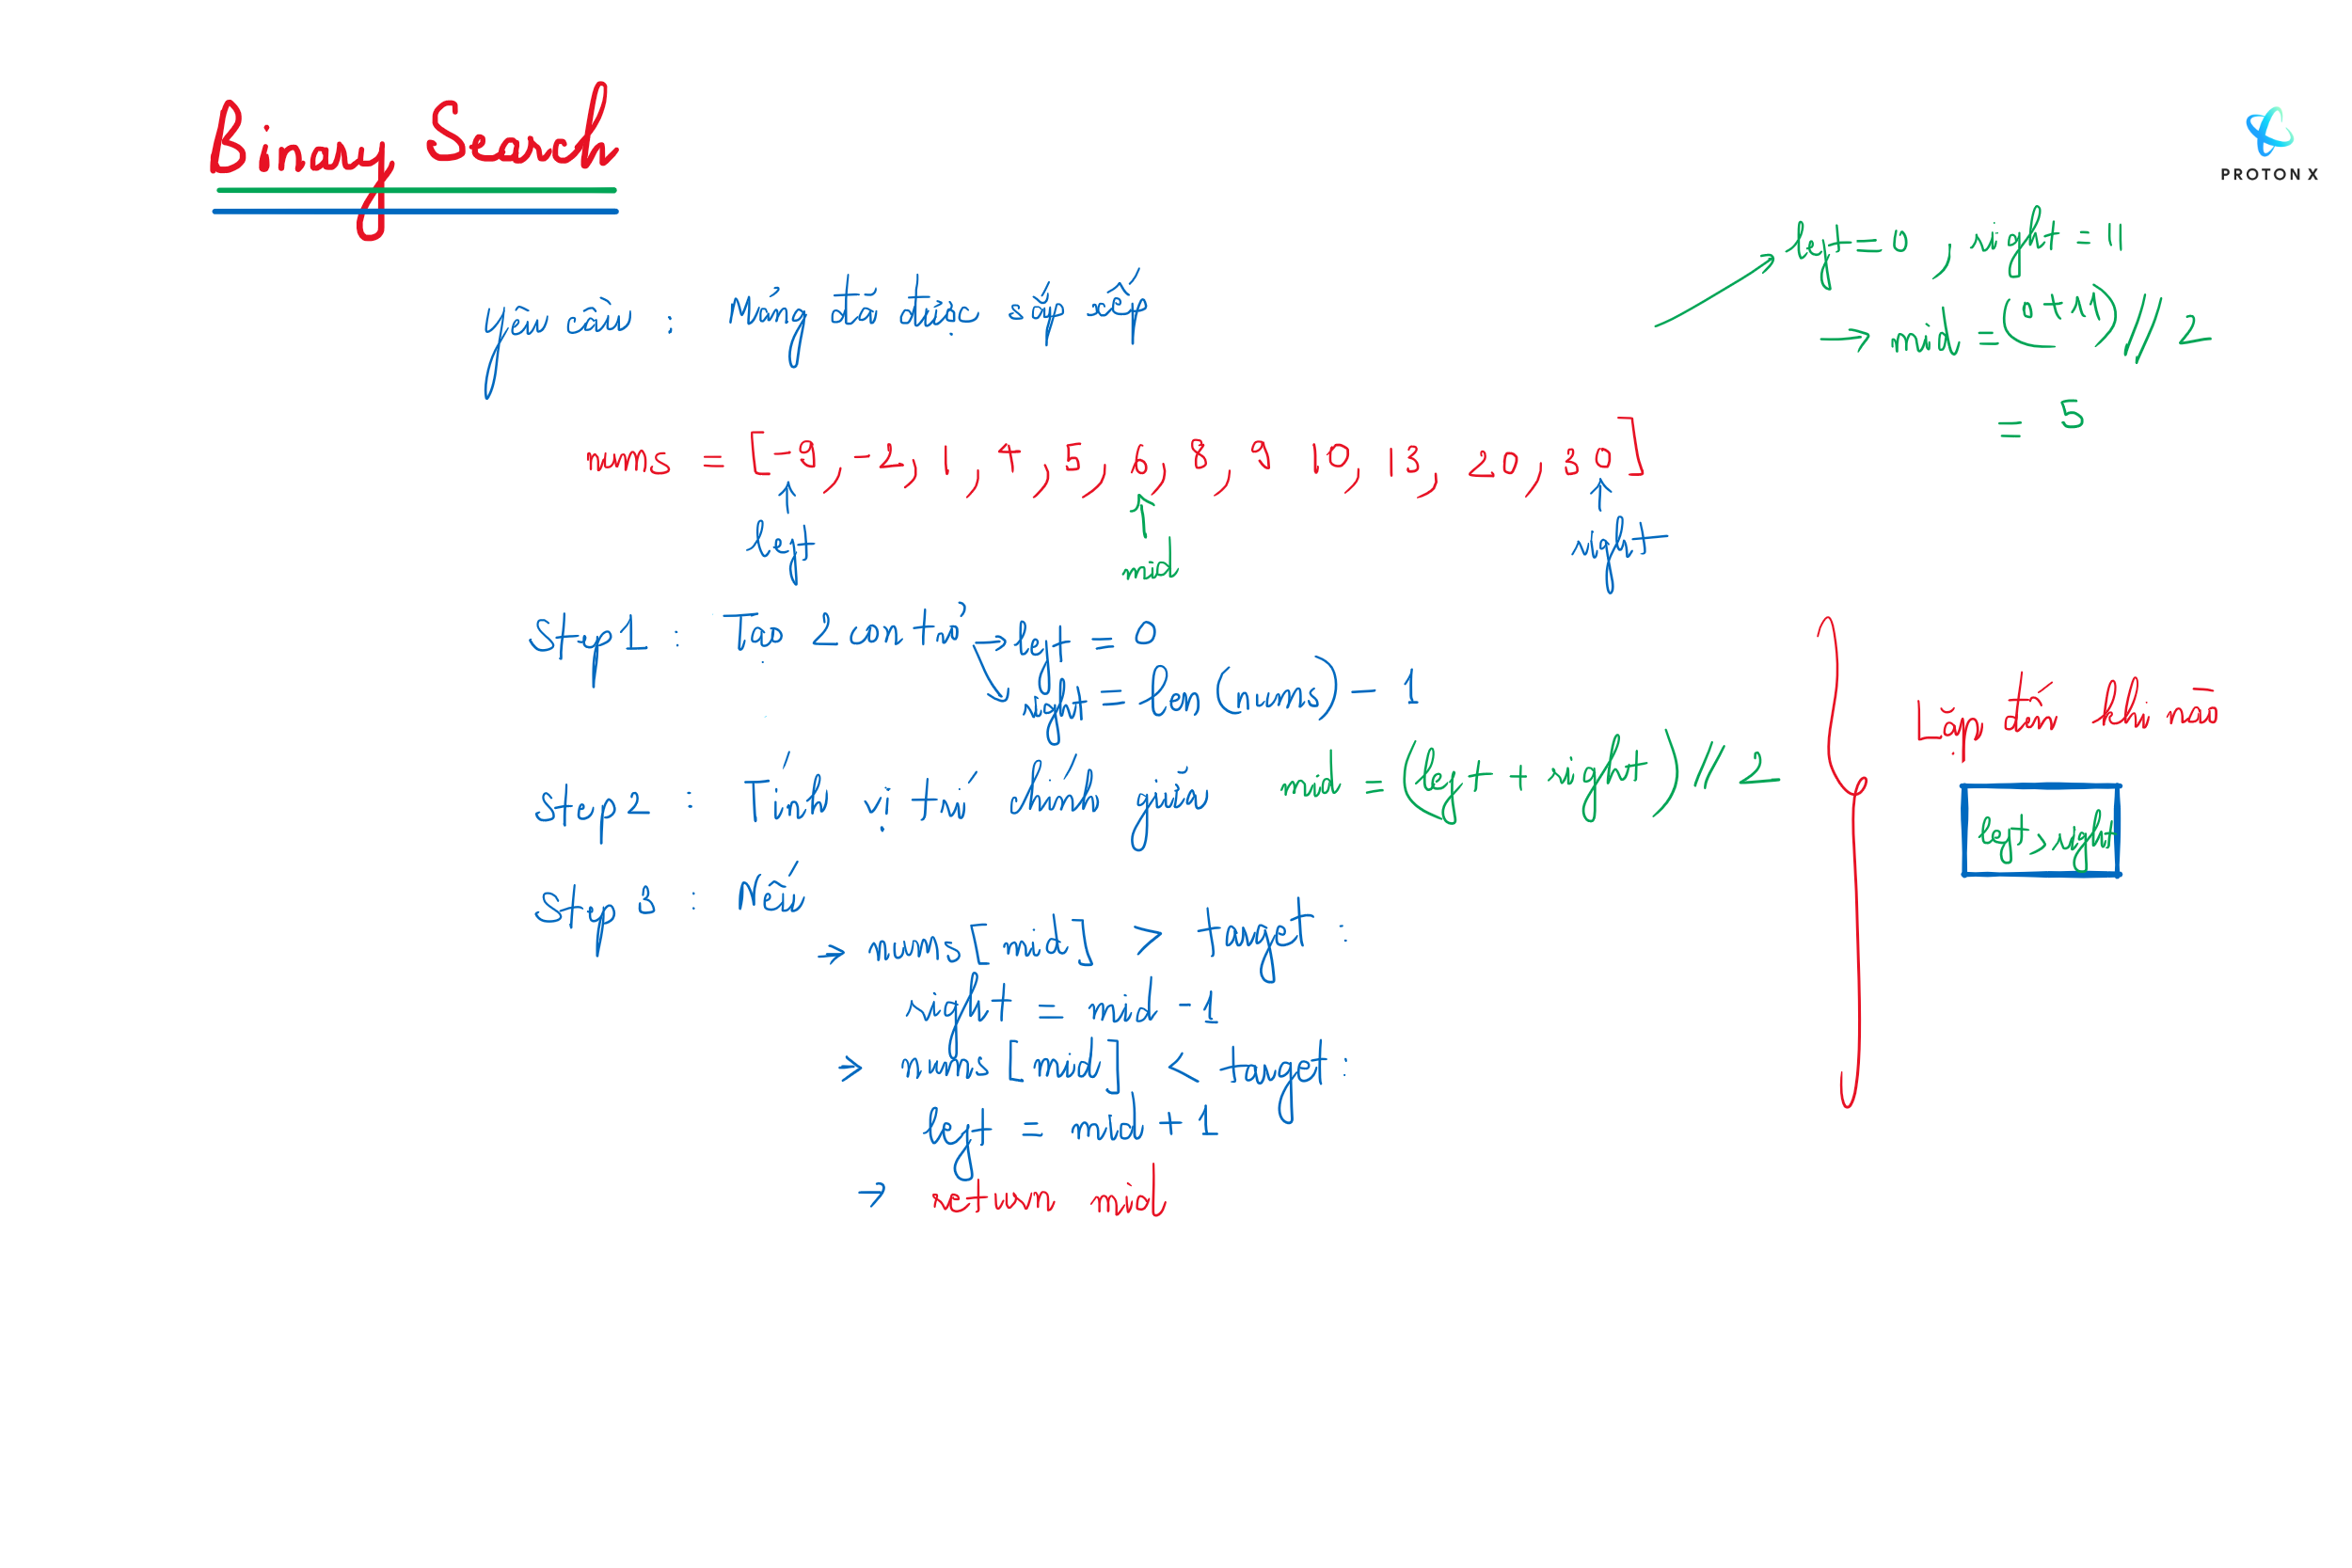 Binary Search
PROTON X
left = 0, right = 11
→ mid = (0 + 11) // 2
= 5
Yêu cầu : Mảng đã được sắp xếp
nums = [-9, -2, 1, 4, 5, 6, 8, 9 10, 13, 20, 30]
left
mid
right
Step 1 : Tạo 2 con trỏ → left = 0
right = len (nums) - 1
Step 2 : Tính vị trí chính giữa mid = (left + right) // 2
Step 3 : Nếu
→ nums [mid] > target :
right = mid - 1
> nums [mid] < target :
left = mid + 1
→ return mid
Lặp đến khi nào
left > right